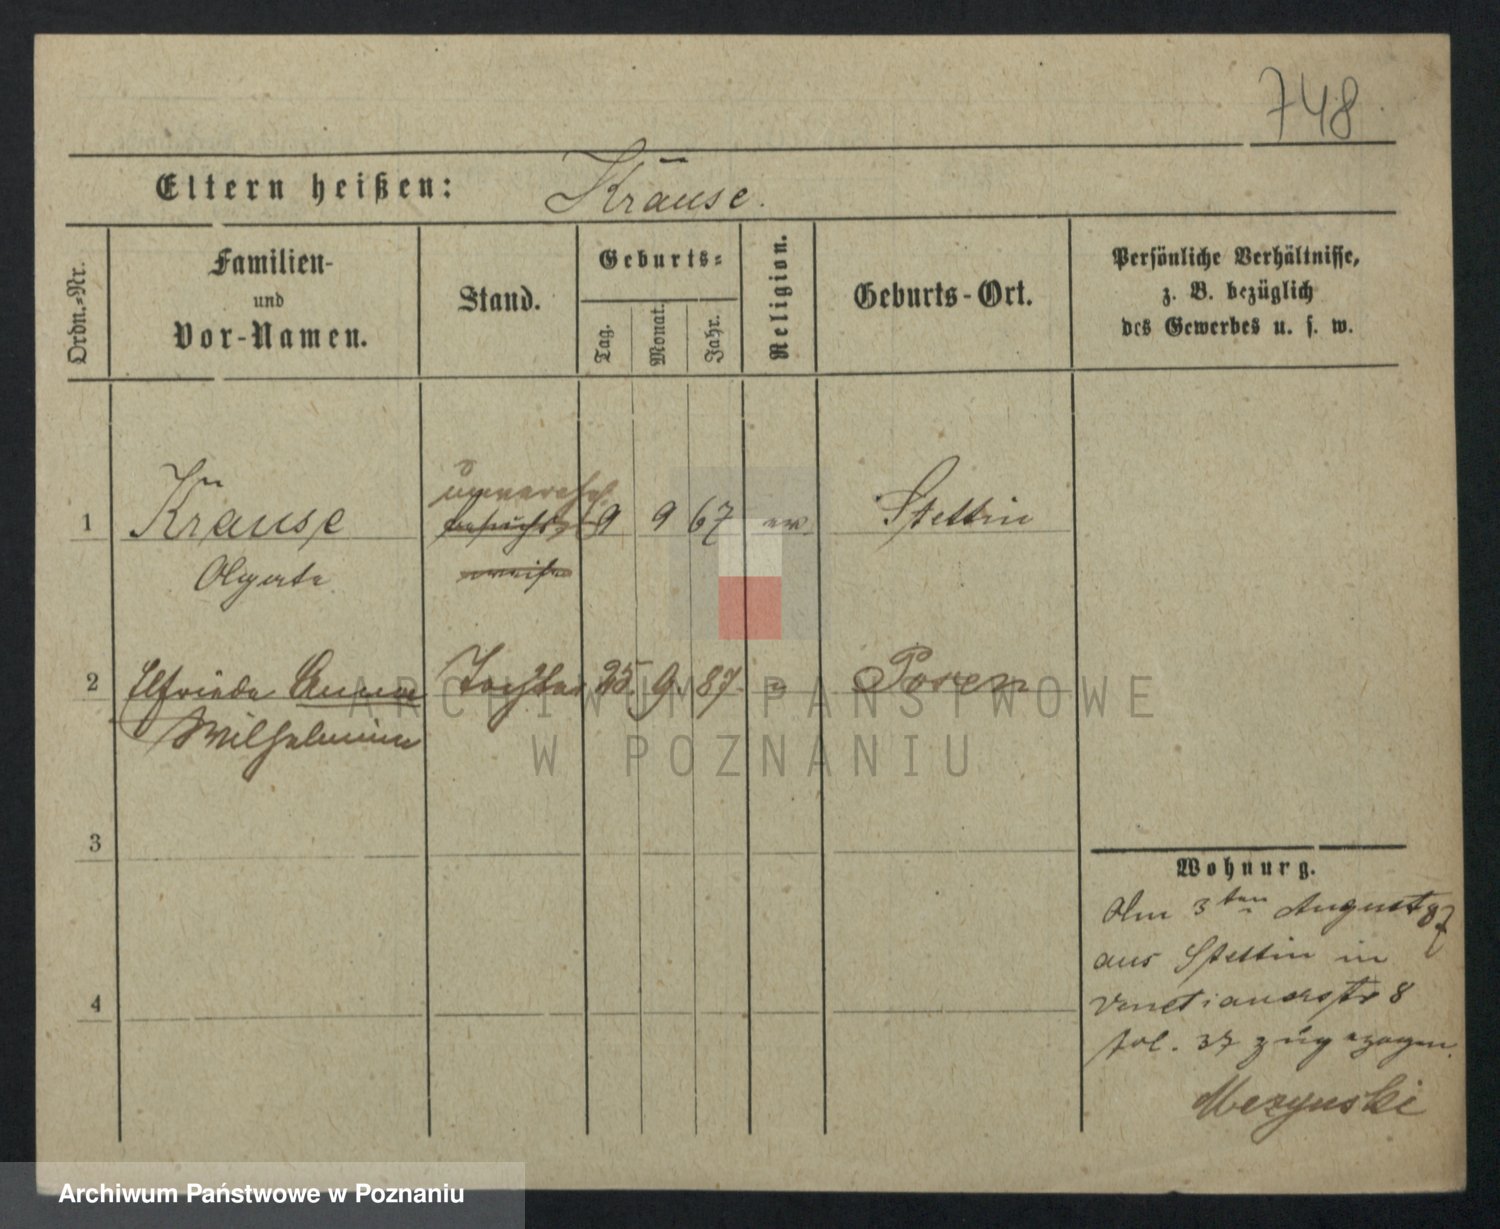 748
Eltern heißen: Krause.
Ordn.=Nr.
Familien-
und
Vor-Namen.
Stand.
Geburts=
Tag.
Monat.
Jahr.
Religion.
Geburts-Ort.
Persönliche Verhältnisse,
z. B. bezüglich
des Gewerbes u. s. w.
unvereh.
besuchs
1 Krause 9 9 67 ev Stettin
weise
2 Elfriede Anna Tochter 25. 9. 87 Posen
Wilhelmine
ARCHIWUM PAŃSTWOWE
W POZNANIU
3
4
Wohnung.
Am 3ten August 87
aus Stettin in
Venetianerstr 8
pol. 37 zugezogen.
Archiwum Państwowe w Poznaniu